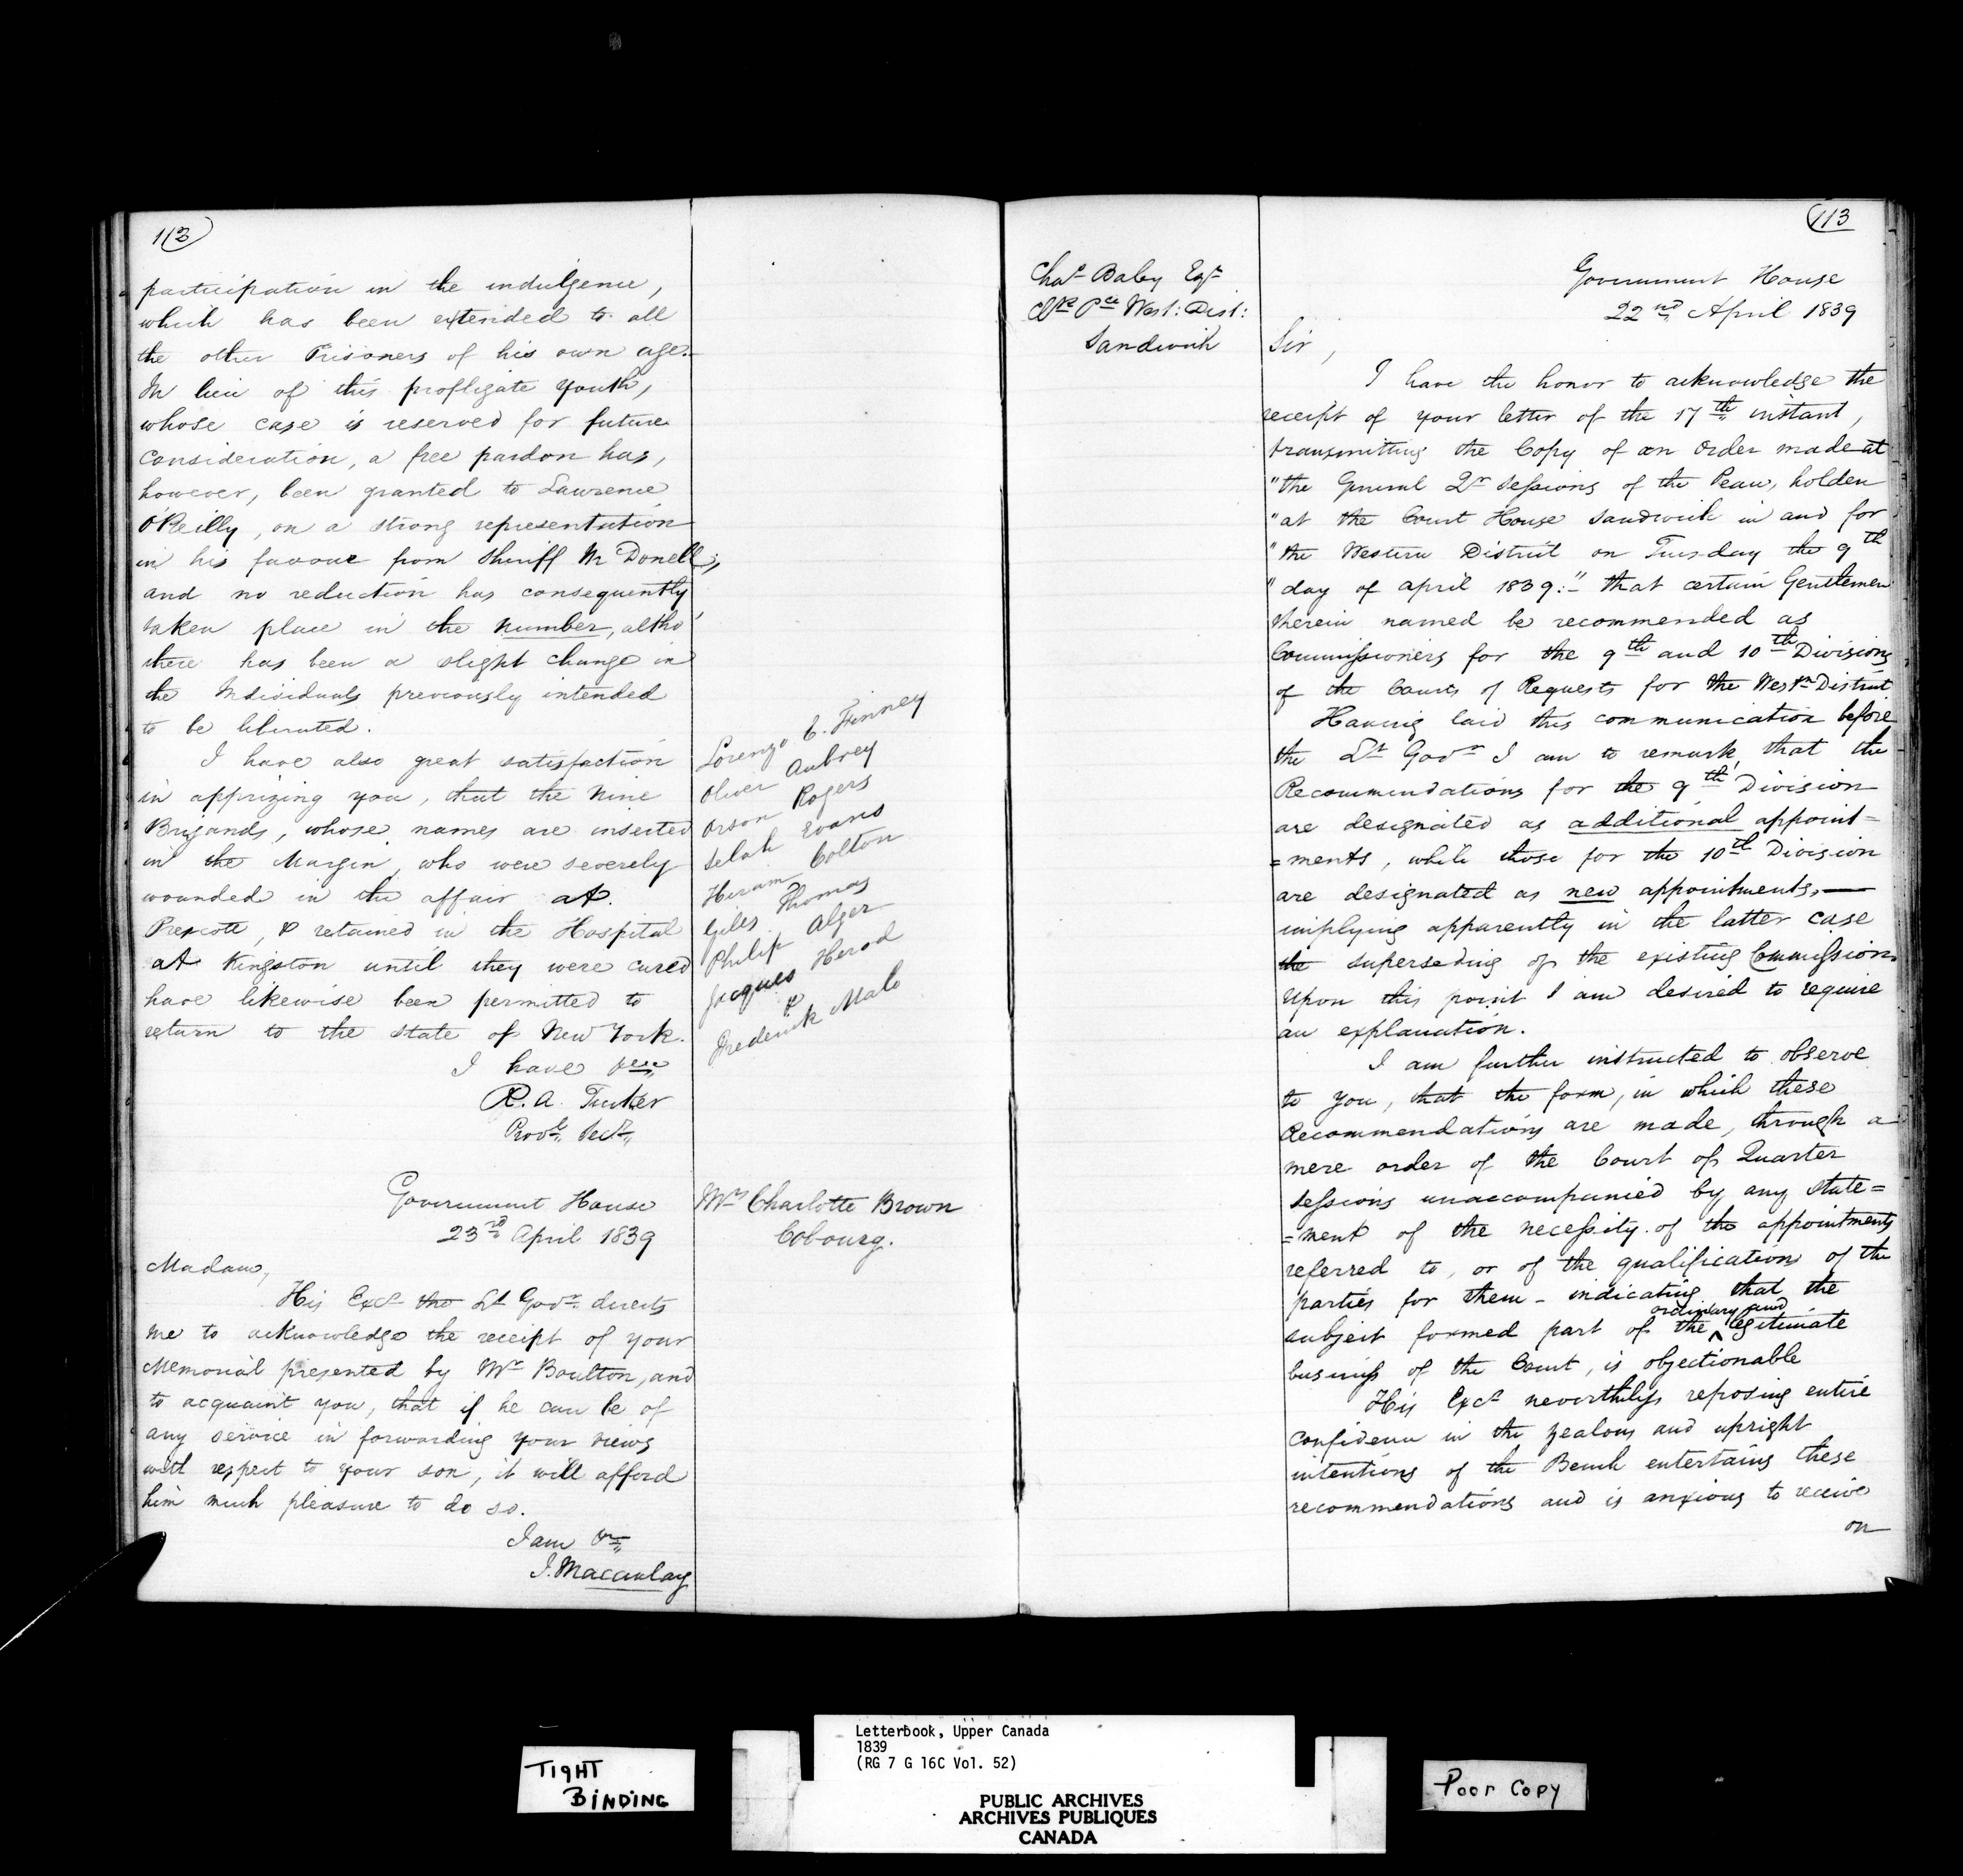 112
participation in the indulgence,
which has been extended to all
the other Prisoners of his own age.
In lieu of this profligate youth,
whose case is reserved for future
consideration, a free pardon has,
however, been granted to Lawrence
O'Reilly, on a strong representation
in his favour from Sheriff McDonell;
and no reduction has consequently
taken place in the number, altho'
there has been a slight change in
the Individuals previously intended
to be liberated.
I have also great satisfaction
in apprizing you, that the Nine
Brigands, whose names are inserted
in the Margin, who were severely
wounded in the affair at
Prescott, & retained in the Hospital
at Kingston until they were cured
have likewise been permitted to
return to the State of New York.
I have &c
R. A. Tucker
Provl. Secy.
Lorenzo E. Finney
Oliver Aubrey
Orson Rogers
Selah Evans
Hiram Colton
Giles Thomas
Philip Alger
Jacques Herod
&
Frederick Malo
Government House
23rd April 1839
Mrs Charlotte Brown
Cobourg.
Madam,
His Excy the Lt Govr. directs
me to acknowledge the receipt of your
Memorial presented by Mr Boulton, and
to acquaint you, that if he can be of
any service in forwarding your views
with respect to your son, it will afford
him much pleasure to do so.
I am &c
J. Macaulay
113
Chas Baby Esqr
Clk Pce West: Dist:
Sandwich
Government House
22nd April 1839
Sir,
I have the honor to acknowledge the
receipt of your letter of the 17th instant,
transmitting the Copy of an Order made at
"the General Qr Sessions of the Peace, holden
"at the Court House Sandwich in and for
"the Western District on Tuesday the 9th
"day of April 1839:" - that certain Gentlemen
therein named be recommended as
Commissioners for the 9th and 10th Divisions
of the Courts of Requests for the Westn District
Having laid this communication before
the Lt Govr I am to remark, that the
Recommendations for the 9th Division
are designated as additional appoint=
=ments, while those for the 10th Division
are designated as new appointments,—
implying apparently in the latter case
the superseding of the existing Commission.
Upon this point I am desired to require
an explanation.
I am further instructed to observe
to you, that the form, in which these
Recommendations are made, through a
mere order of the Court of Quarter
Sessions unaccompanied by any state=
=ment of the necessity of the appointments
referred to, or of the qualifications of the
parties for them - indicating that the
subject formed part of the ordinary and legitimate
business of the Court, is objectionable
His Excy nevertheless reposing entire
confidence in the zealous and upright
intentions of the Bench entertains these
recommendations and is anxious to receive
on
TIGHT
BINDING
Letterbook, Upper Canada
1839
(RG 7 G 16C Vol. 52)
PUBLIC ARCHIVES
ARCHIVES PUBLIQUES
CANADA
Poor Copy